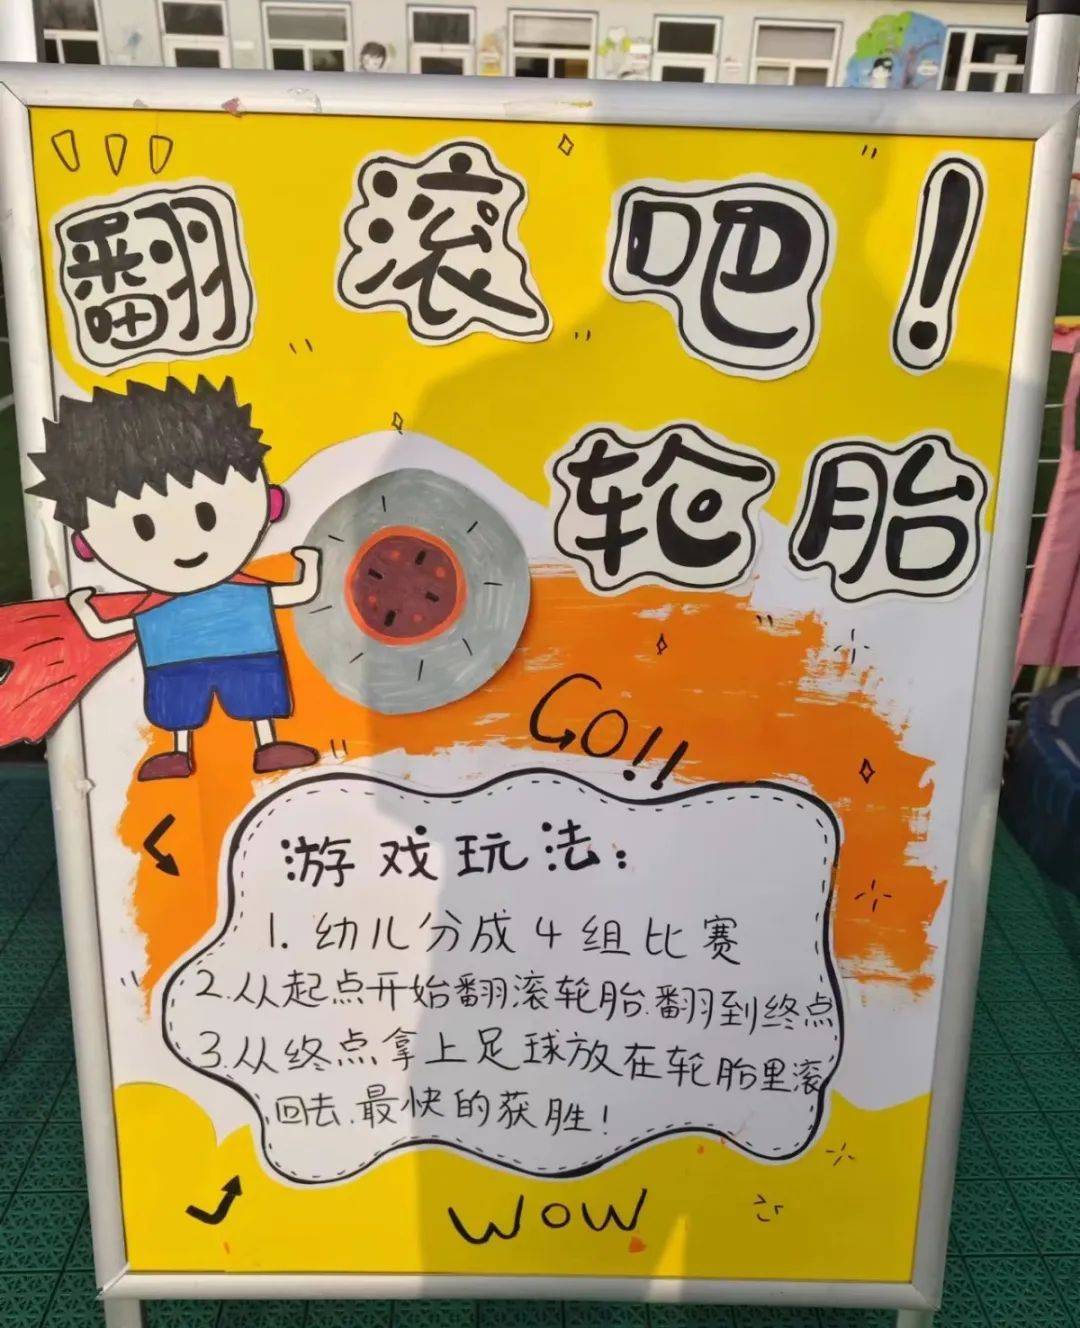 翻滚吧!
轮胎
GO!!
游戏玩法:
1. 幼儿分成4组比赛
2.从起点开始翻滚轮胎.翻到终点
3.从终点拿上足球放在轮胎里滚
回去.最快的获胜!
WOW